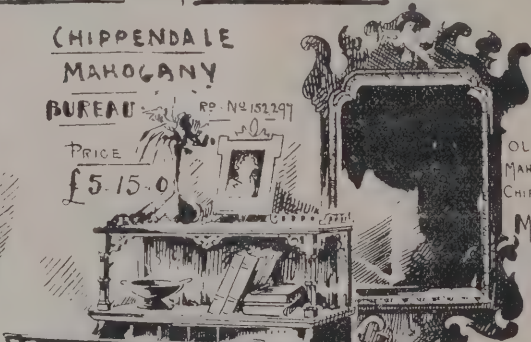 CHIPPENDALE
MAHOGANY
BUREAU
RD. No 152297
PRICE
£5.15.0